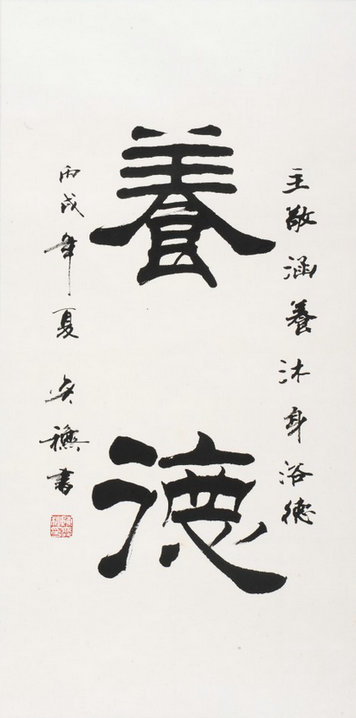 主敬涵養沐身浴德
養德
丙戌年夏
書